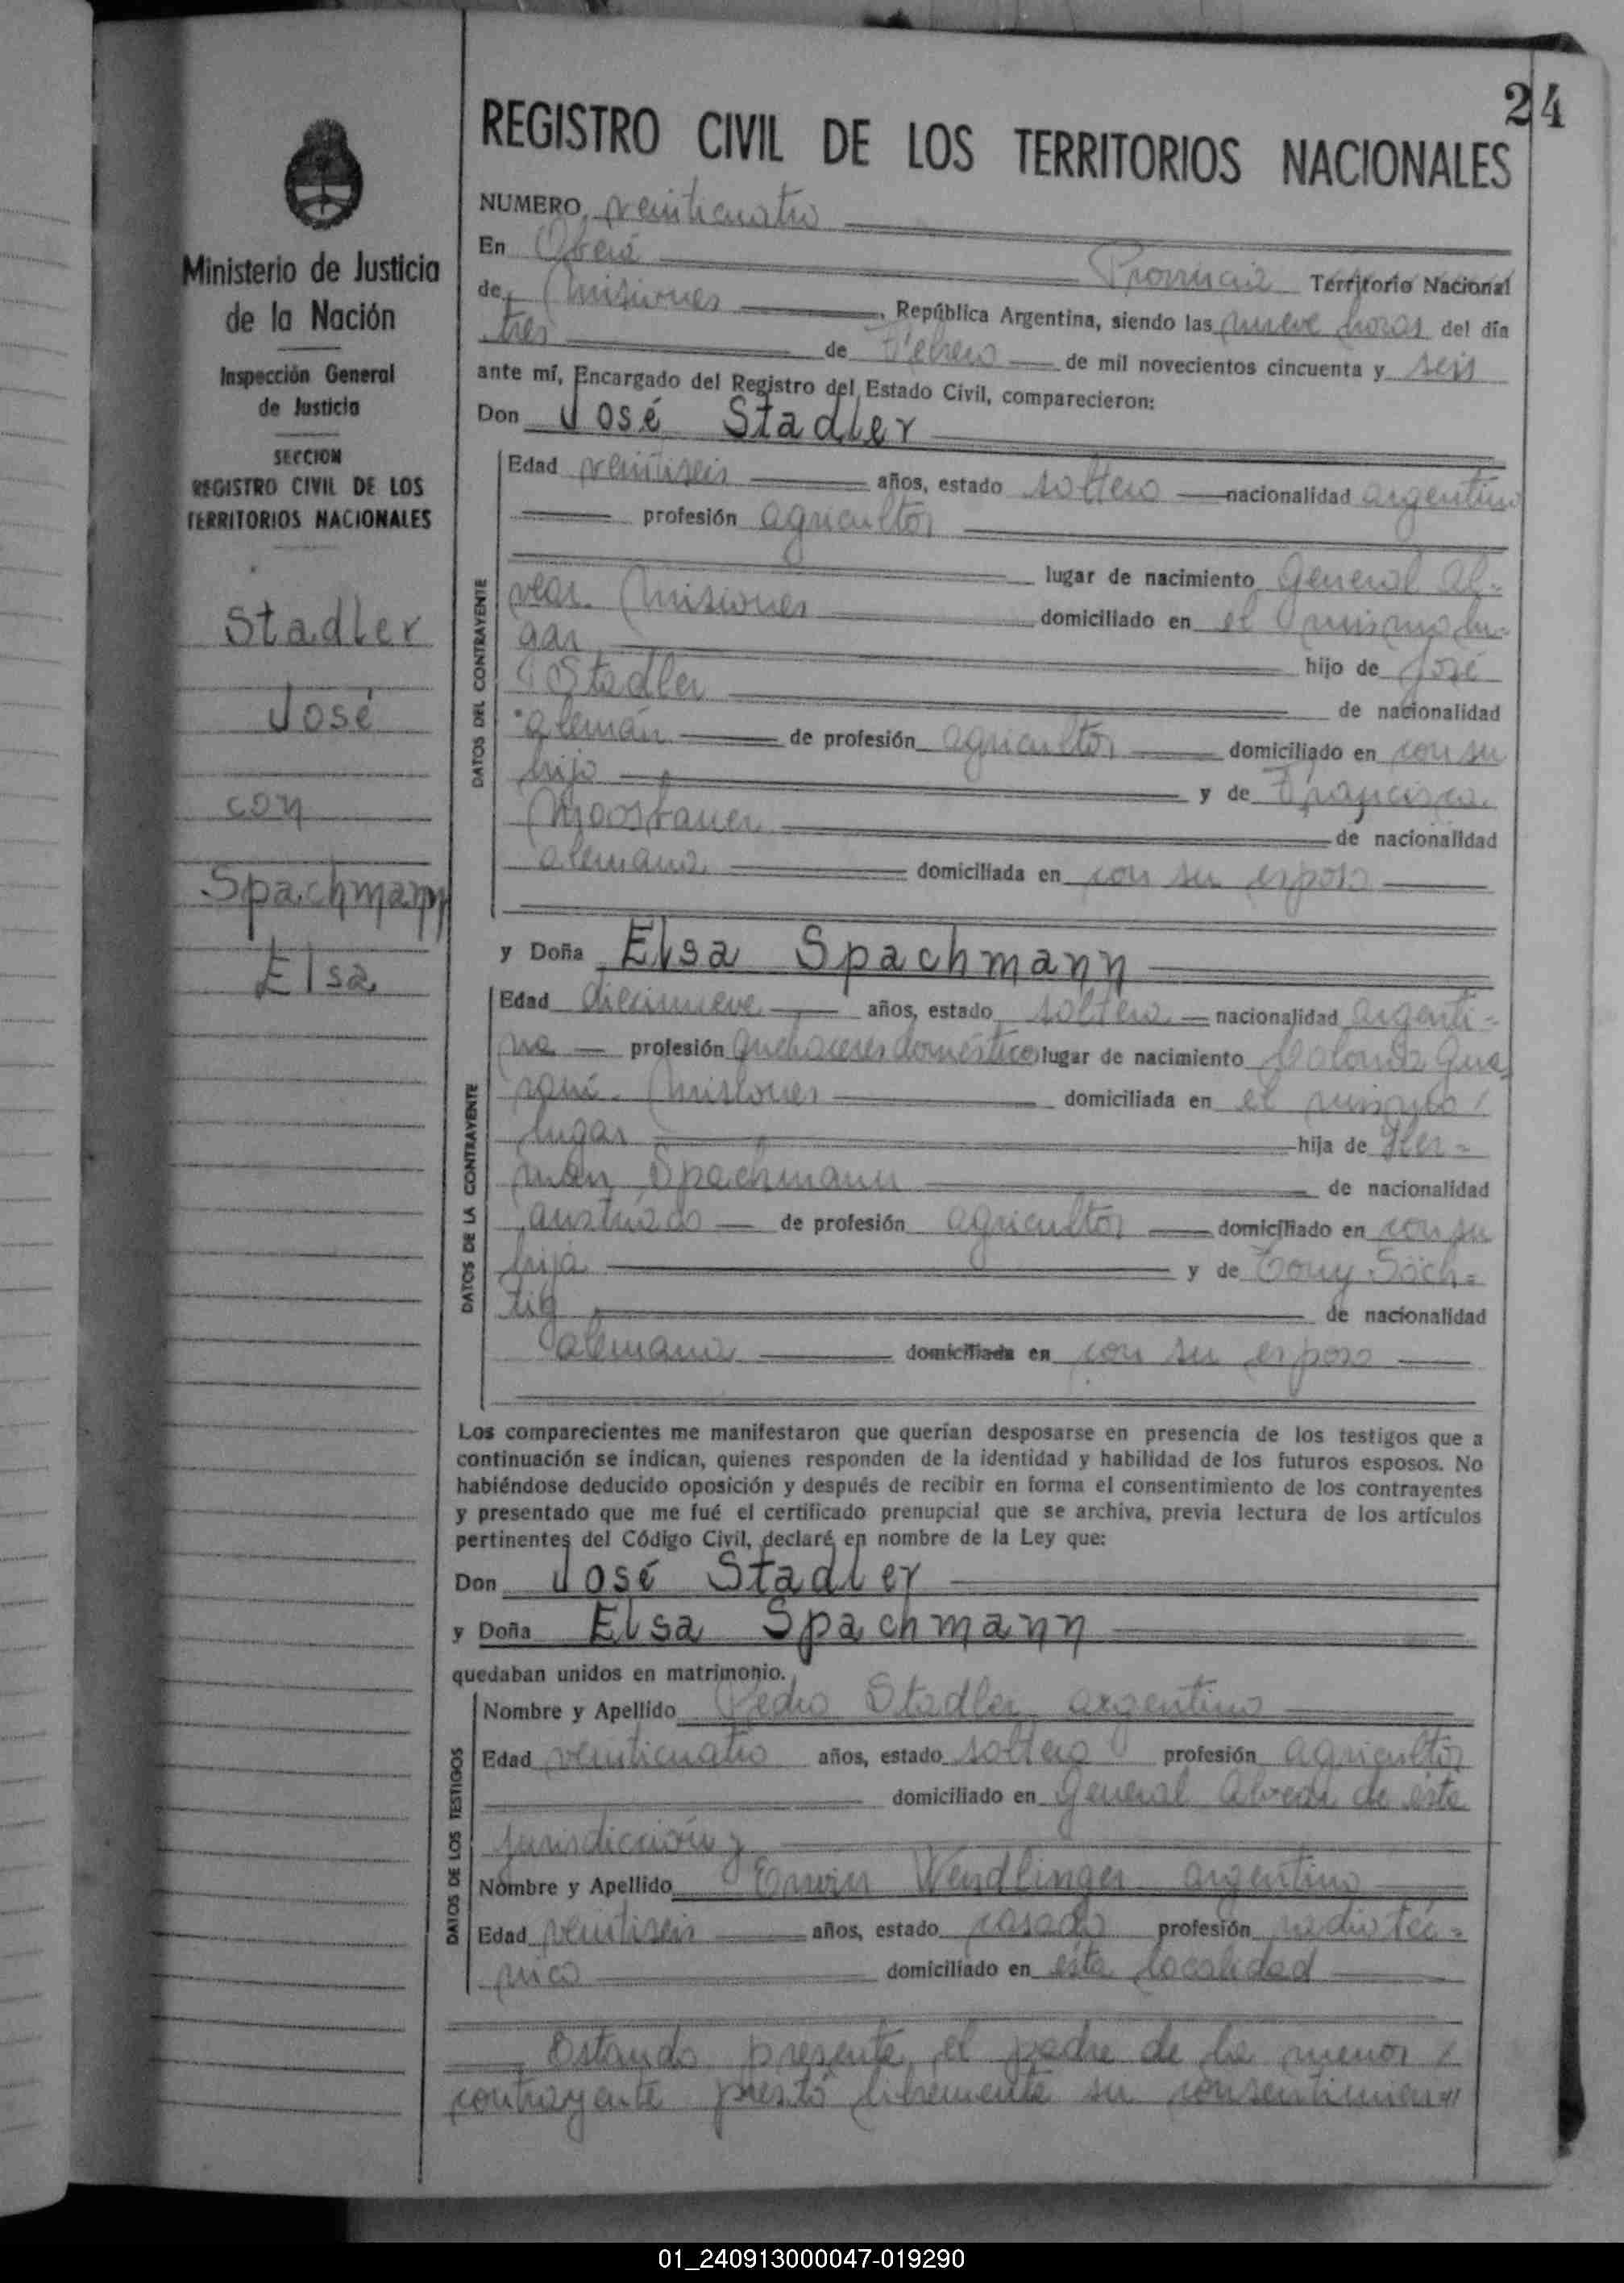 24
REGISTRO CIVIL DE LOS TERRITORIOS NACIONALES
Ministerio de Justicia
de la Nación
Inspección General
de Justicia
SECCION
REGISTRO CIVIL DE LOS
TERRITORIOS NACIONALES
Stadler
José
con
Spachmann
Elsa
NUMERO veinticuatro
En Oberá Provincia Territorio Nacional
de Misiones , República Argentina, siendo las nueve horas del día
tres de Febrero de mil novecientos cincuenta y seis
ante mí, Encargado del Registro del Estado Civil, comparecieron:
Don José Stadler
DATOS DEL CONTRAYENTE
Edad veintiseis años, estado soltero nacionalidad argentino
profesión agricultor
lugar de nacimiento General Al-
vear. Misiones domiciliado en el mismo lu-
gar hijo de José
Stadler de nacionalidad
alemán de profesión agricultor domiciliado en con su
hijo y de Francisca
Moosbauer de nacionalidad
alemana domiciliada en con su esposo
y Doña Elsa Spachmann
DATOS DE LA CONTRAYENTE
Edad diecinueve años, estado soltera nacionalidad argenti-
na profesión quehaceres domésticos lugar de nacimiento Colonia Gua
raní. Misiones domiciliada en el mismo /
lugar hija de Her-
man Spachmann de nacionalidad
austríaco de profesión agricultor domiciliado en con su
hija y de Tony Söch-
tig de nacionalidad
alemana domiciliada en con su esposo
Los comparecientes me manifestaron que querían desposarse en presencia de los testigos que a
continuación se indican, quienes responden de la identidad y habilidad de los futuros esposos. No
habiéndose deducido oposición y después de recibir en forma el consentimiento de los contrayentes
y presentado que me fué el certificado prenupcial que se archiva, previa lectura de los artículos
pertinentes del Código Civil, declaré en nombre de la Ley que:
Don José Stadler
y Doña Elsa Spachmann
quedaban unidos en matrimonio.
DATOS DE LOS TESTIGOS
Nombre y Apellido Pedro Stadler argentino
Edad veinticuatro años, estado soltero profesión agricultor
domiciliado en General Alvear de ésta
jurisdicción y
Nombre y Apellido Erwin Wendlinger argentino
Edad veintiseis años, estado casado profesión radio téc-
nico domiciliado en ésta localidad
Estando presente el padre de la menor /
contrayente prestó libremente su consentimien-"
01_240913000047-019290